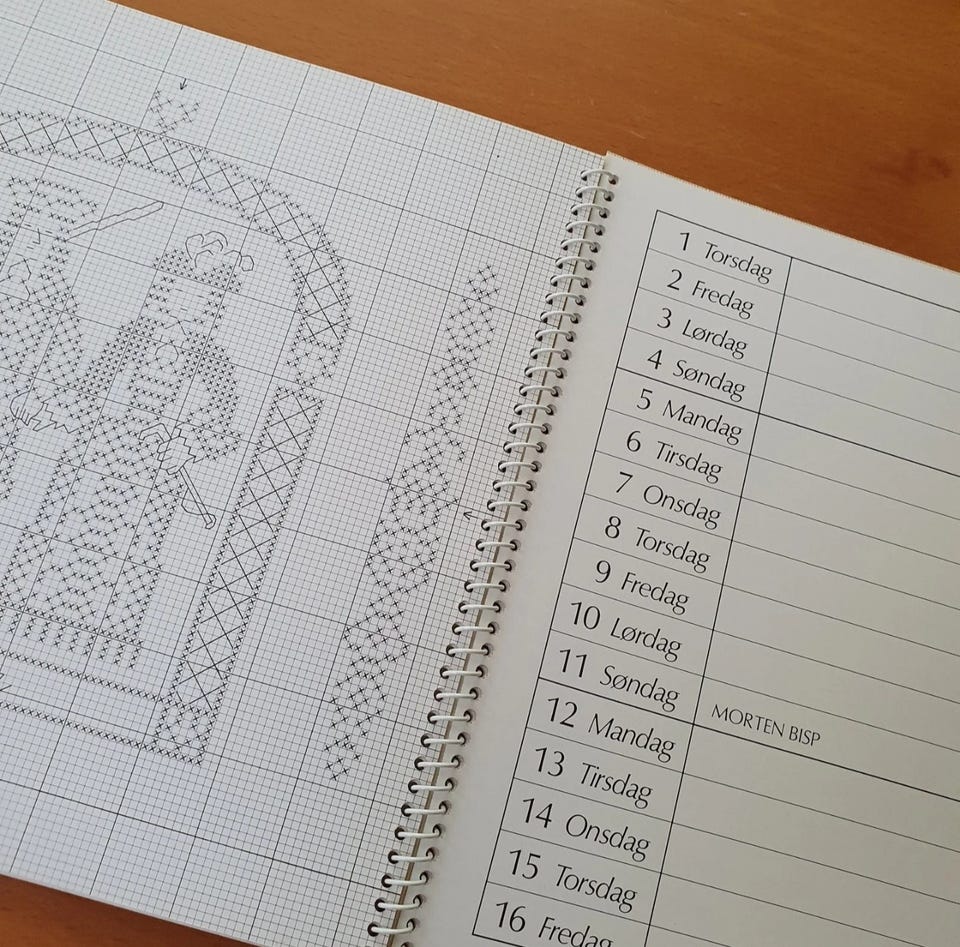 1 Torsdag
2 Fredag
3 Lørdag
4 Søndag
5 Mandag
6 Tirsdag
7 Onsdag
8 Torsdag
9 Fredag
10 Lørdag
11 Søndag MORTEN BISP
12 Mandag
13 Tirsdag
14 Onsdag
15 Torsdag
16 Fredag